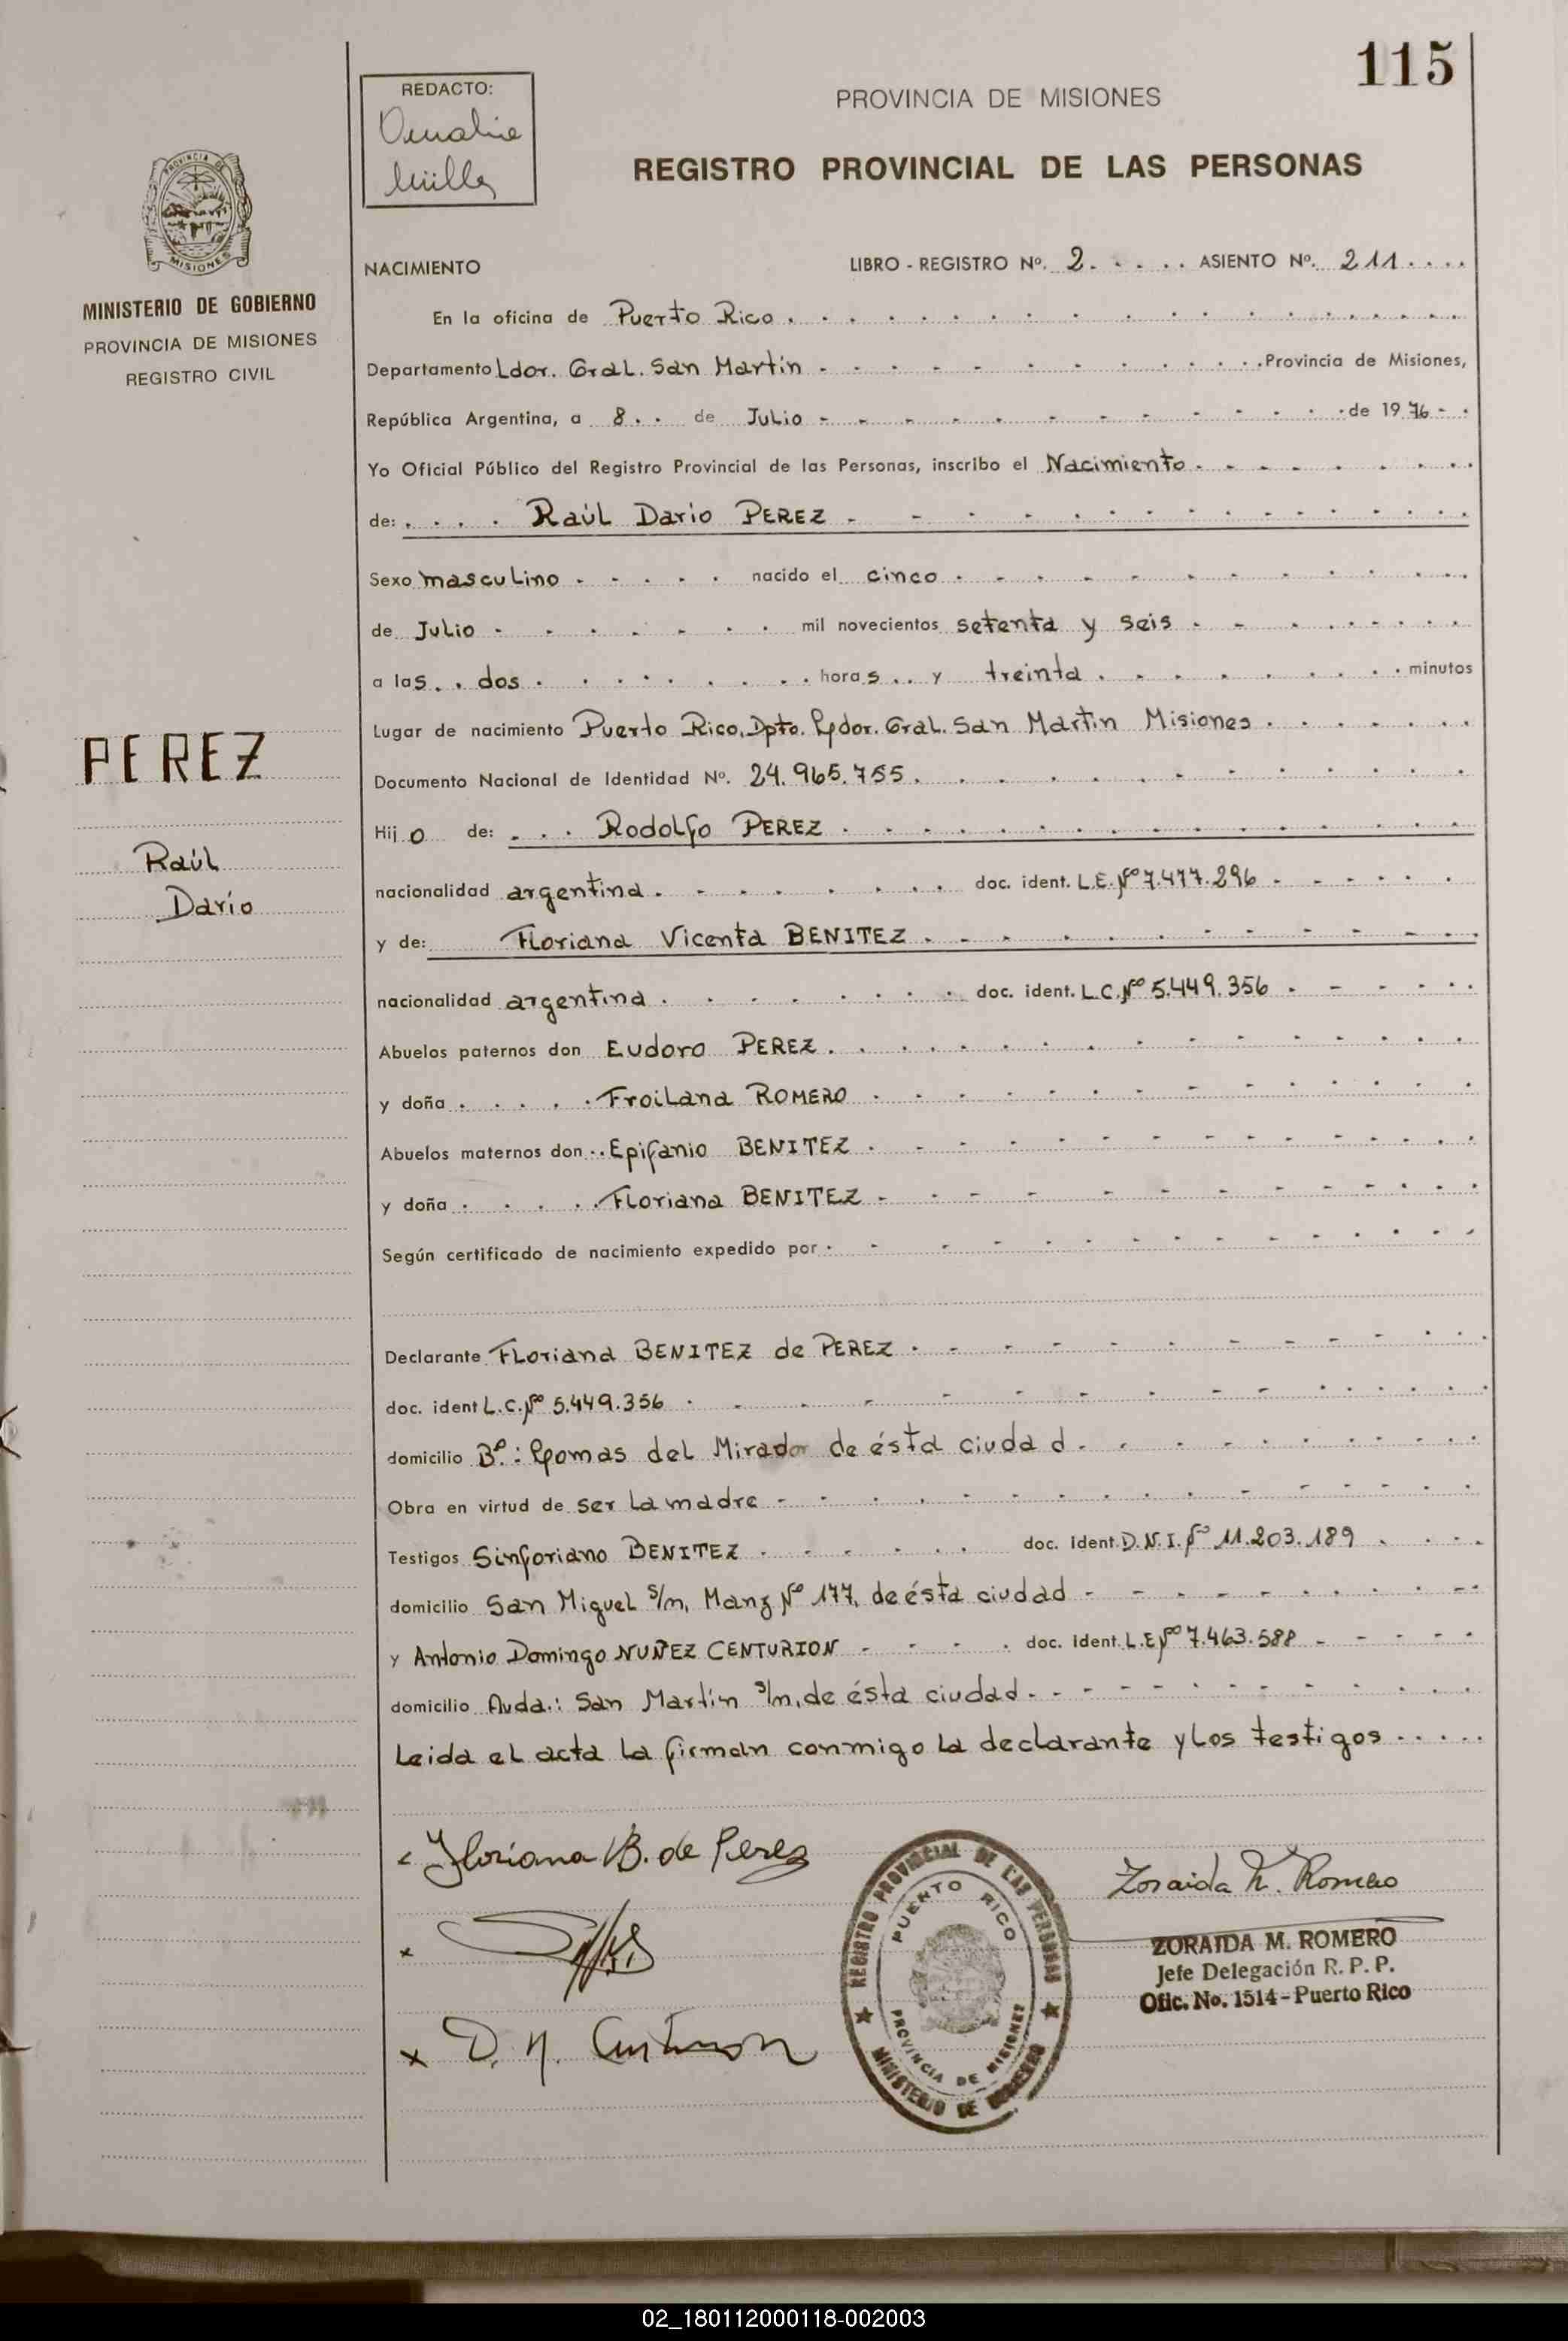 115
REDACTO:
PROVINCIA DE MISIONES
REGISTRO PROVINCIAL DE LAS PERSONAS
PROVINCIA DE
MISIONES
MINISTERIO DE GOBIERNO
PROVINCIA DE MISIONES
REGISTRO CIVIL
NACIMIENTO LIBRO - REGISTRO Nº. 2. ASIENTO Nº. 211
En la oficina de Puerto Rico
Departamento Ldor. Gral. San Martín Provincia de Misiones,
República Argentina, a 8 de Julio de 1976
Yo Oficial Público del Registro Provincial de las Personas, inscribo el Nacimiento
de: Raúl Dario PEREZ
Sexo masculino nacido el cinco
de Julio mil novecientos setenta y seis
a las dos horas y treinta minutos
Lugar de nacimiento Puerto Rico, Dpto. Lydor. Gral. San Martin Misiones
PEREZ
Raúl
Darío
Documento Nacional de Identidad Nº. 24.965.755
Hijo de: Rodolfo PEREZ
nacionalidad argentina doc. ident. L.E. Nº 7.477.296
y de: Floriana Vicenta BENITEZ
nacionalidad argentina doc. ident. L.C. Nº 5.449.356
Abuelos paternos don Eudoro PEREZ
y doña Froilana ROMERO
Abuelos maternos don Epifanio BENITEZ
y doña Floriana BENITEZ
Según certificado de nacimiento expedido por
Declarante Floriana BENITEZ de PEREZ
doc. ident L.C. Nº 5.449.356
domicilio Bº.: Lomas del Mirador de ésta ciudad
Obra en virtud de ser la madre
Testigos Sinforiano BENITEZ doc. ident. D.N.I. Nº 11.203.189
domicilio San Miguel s/n, Manz Nº 177, de ésta ciudad
y Antonio Domingo NUÑEZ CENTURION doc. ident. L.E Nº 7.463.588
domicilio Avda.: San Martín s/n, de ésta ciudad
Leida el acta la firman conmigo la declarante y los testigos
Floriana B. de Perez
Zoraida M. Romero
D. N. Centurion
REGISTRO PROVINCIAL DE LAS PERSONAS
PUERTO RICO
PROVINCIA DE MISIONES
MINISTERIO DE GOBIERNO
ZORAIDA M. ROMERO
Jefe Delegación R. P. P.
Ofic. No. 1514 - Puerto Rico
02_180112000118-002003